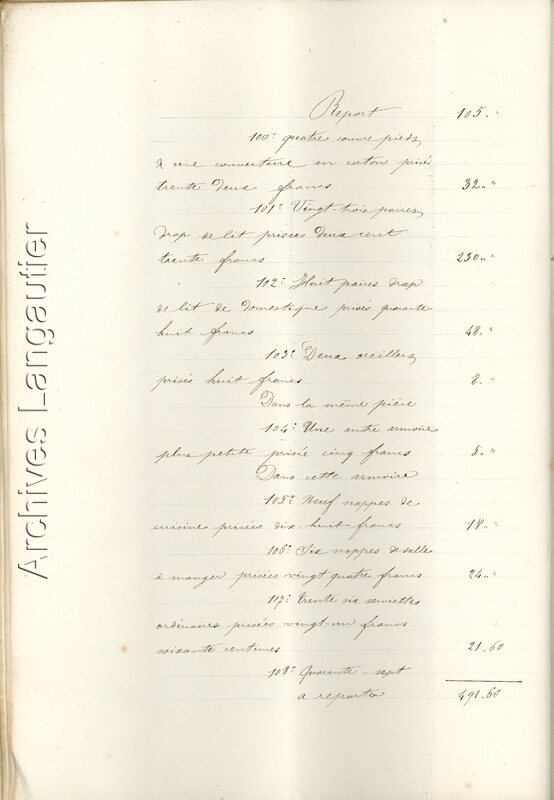 Archives Langautier
Report 105. "
100° quatre couvre pieds
& une couverture en coton prisés
trente deux francs 32. "
101° Vingt-trois paires
drap de lit prisées deux cent
trente francs 230. "
102° Huit paires drap
de lit de domestique prisés quarante
huit francs 48. "
103° Deux oreillers
prisés huit francs 8. "
Dans la même pièce
104° Une autre armoire
plus petite prisée cinq francs 5. "
Dans cette armoire
105° Neuf nappes de
cuisine prisées dix huit francs 18. "
106° Six nappes de salle
à manger prisées vingt quatre francs 24. "
107° Trente six serviettes
ordinaires prisées vingt-un francs
soixante centimes 21.60
108° Quarante-sept
a reporter 491.60